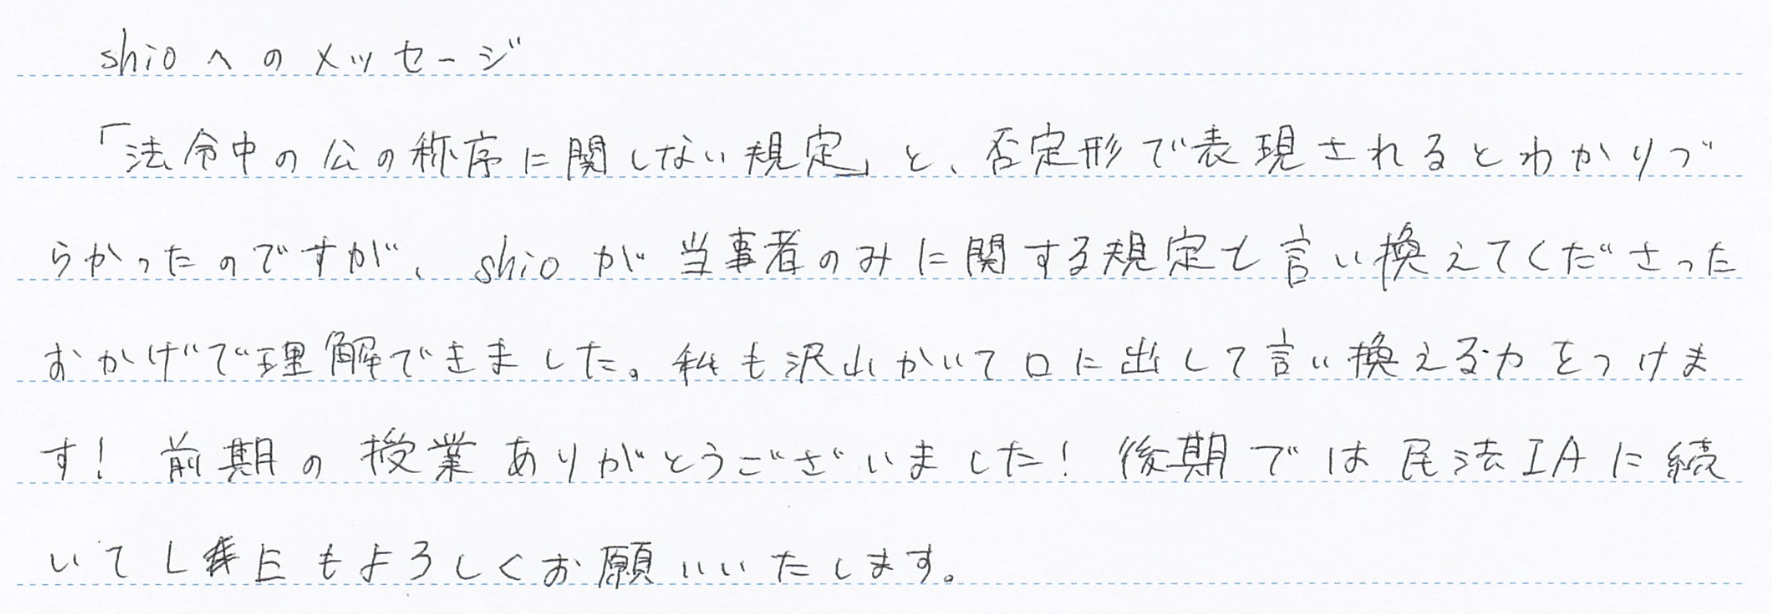 shioへのメッセージ
「法令中の公の秩序に関しない規定」と、否定形で表現されるとわかりづ
らかったのですが、shioが当事者のみに関する規定と言い換えてくださった
おかげで理解できました。私も沢山かいて口に出して言い換える力をつけま
す！前期の授業ありがとうございました！後期では民法IAに続
いてLもよろしくお願いいたします。